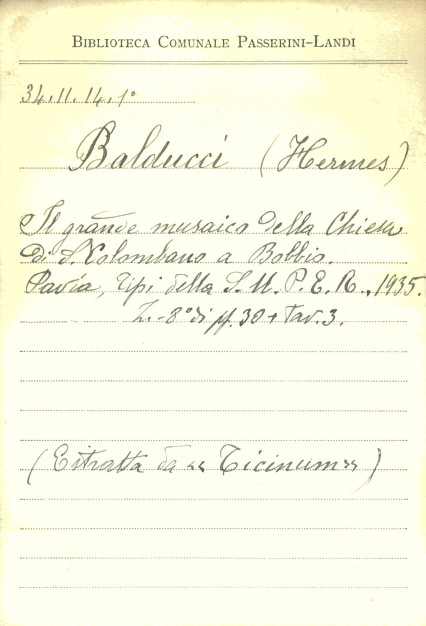 BIBLIOTECA COMUNALE PASSERINI-LANDI
34.11.14.1°
Balducci (Hermes)
Il grande musaico della Chiesa
di S. Colombano a Bobbio.
Pavia, Tipi della S. M. P. E. R., 1935.
Z.-8° di pp. 30 + Tav. 3.
(Estratta da «Ticinum»)